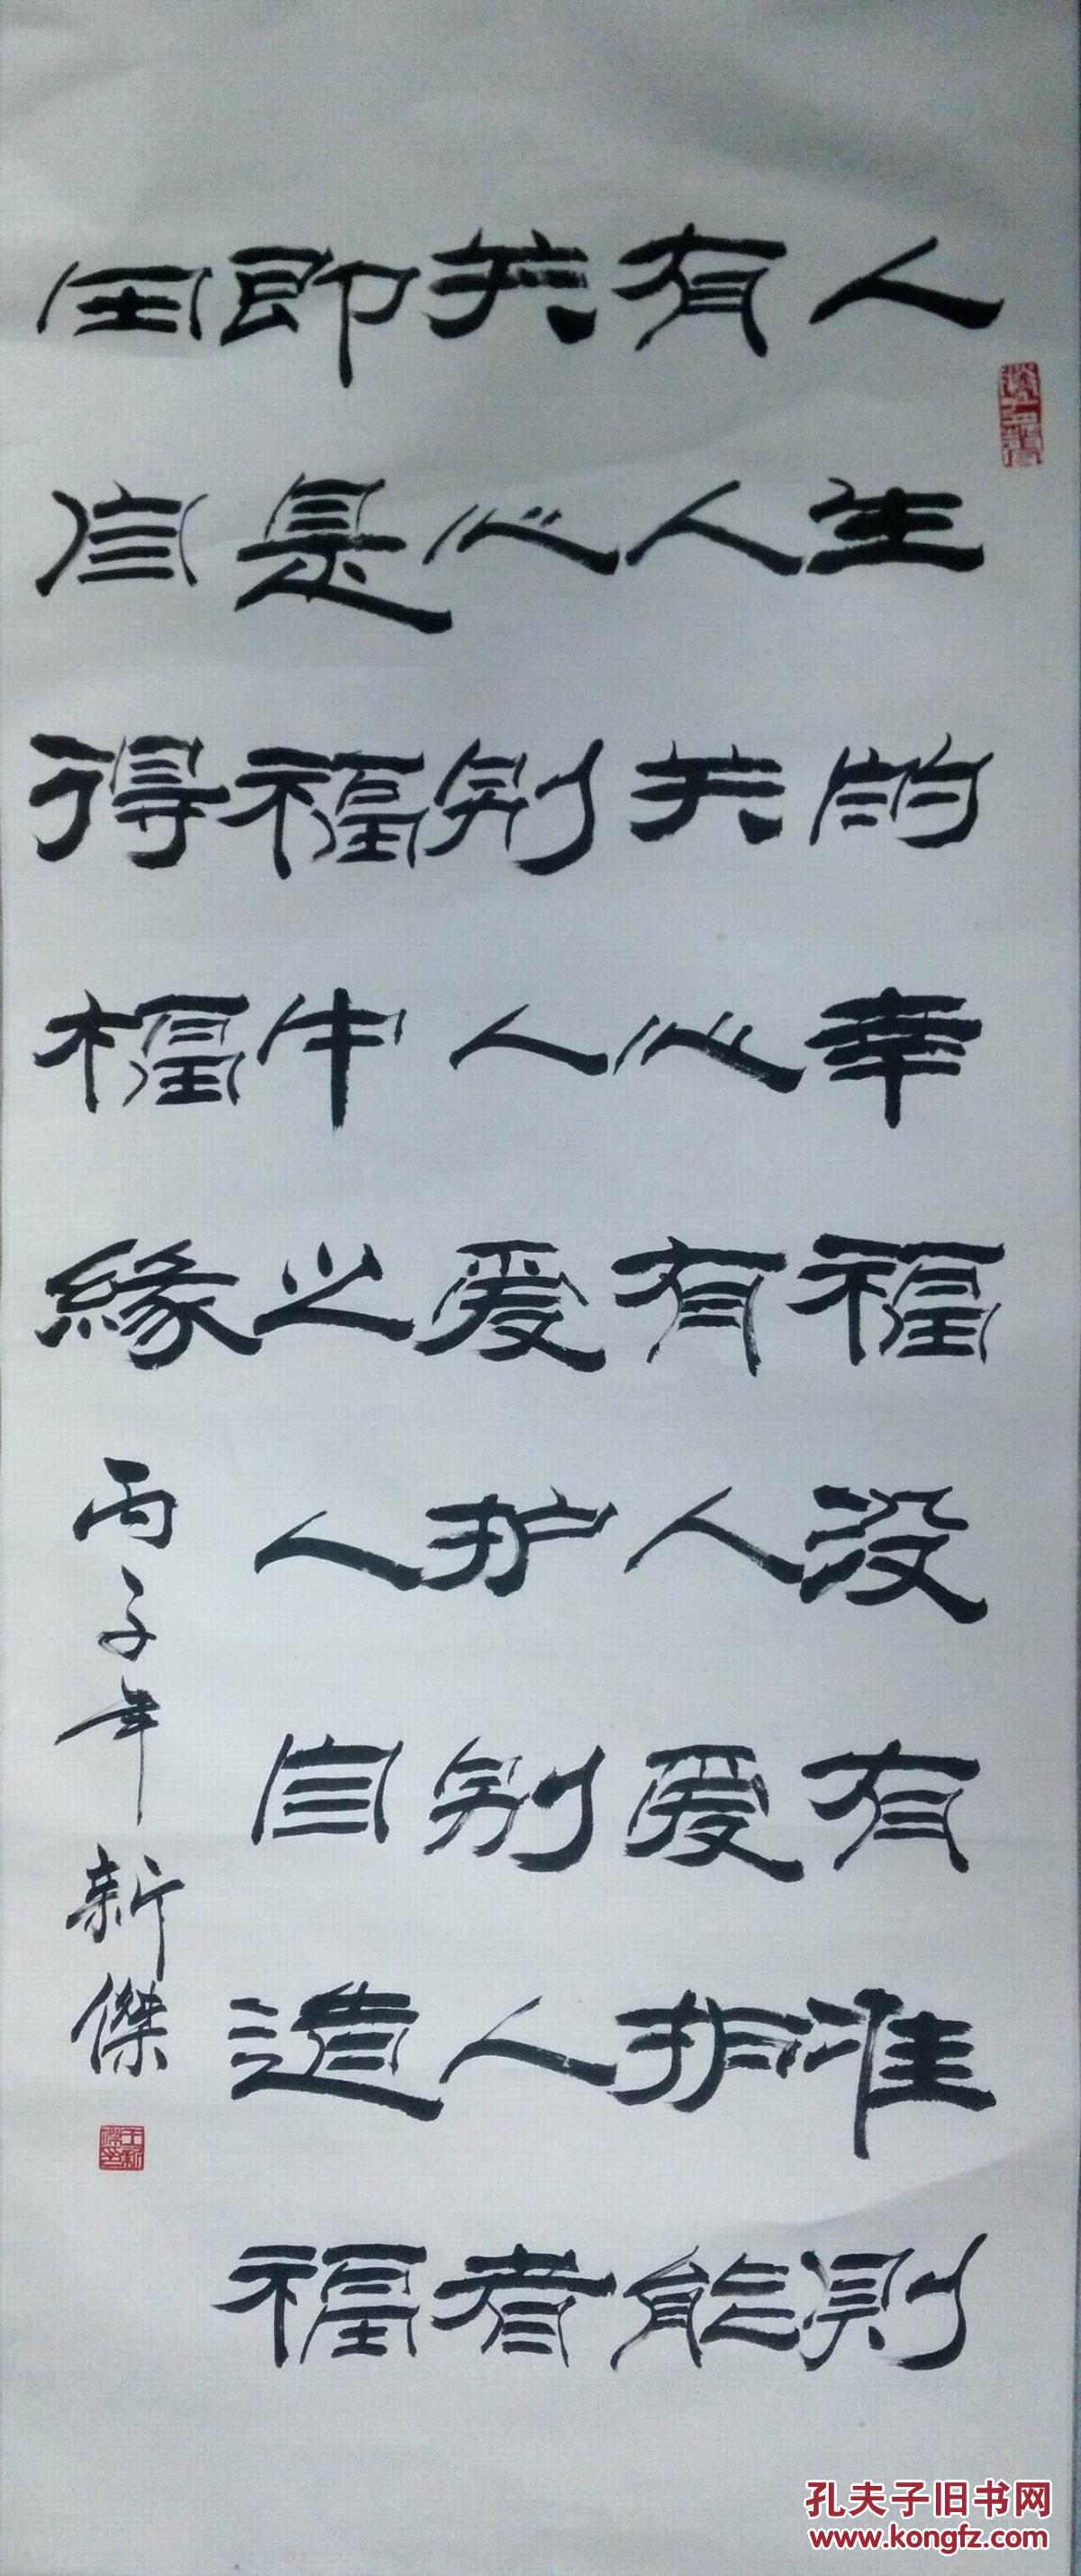 人生的幸福没有准则
有人关心有人爱护能
关心别人爱护别人者
即是福中之人自造福
田自得福緣
丙子年新傑
孔夫子旧书网
www.kongfz.com